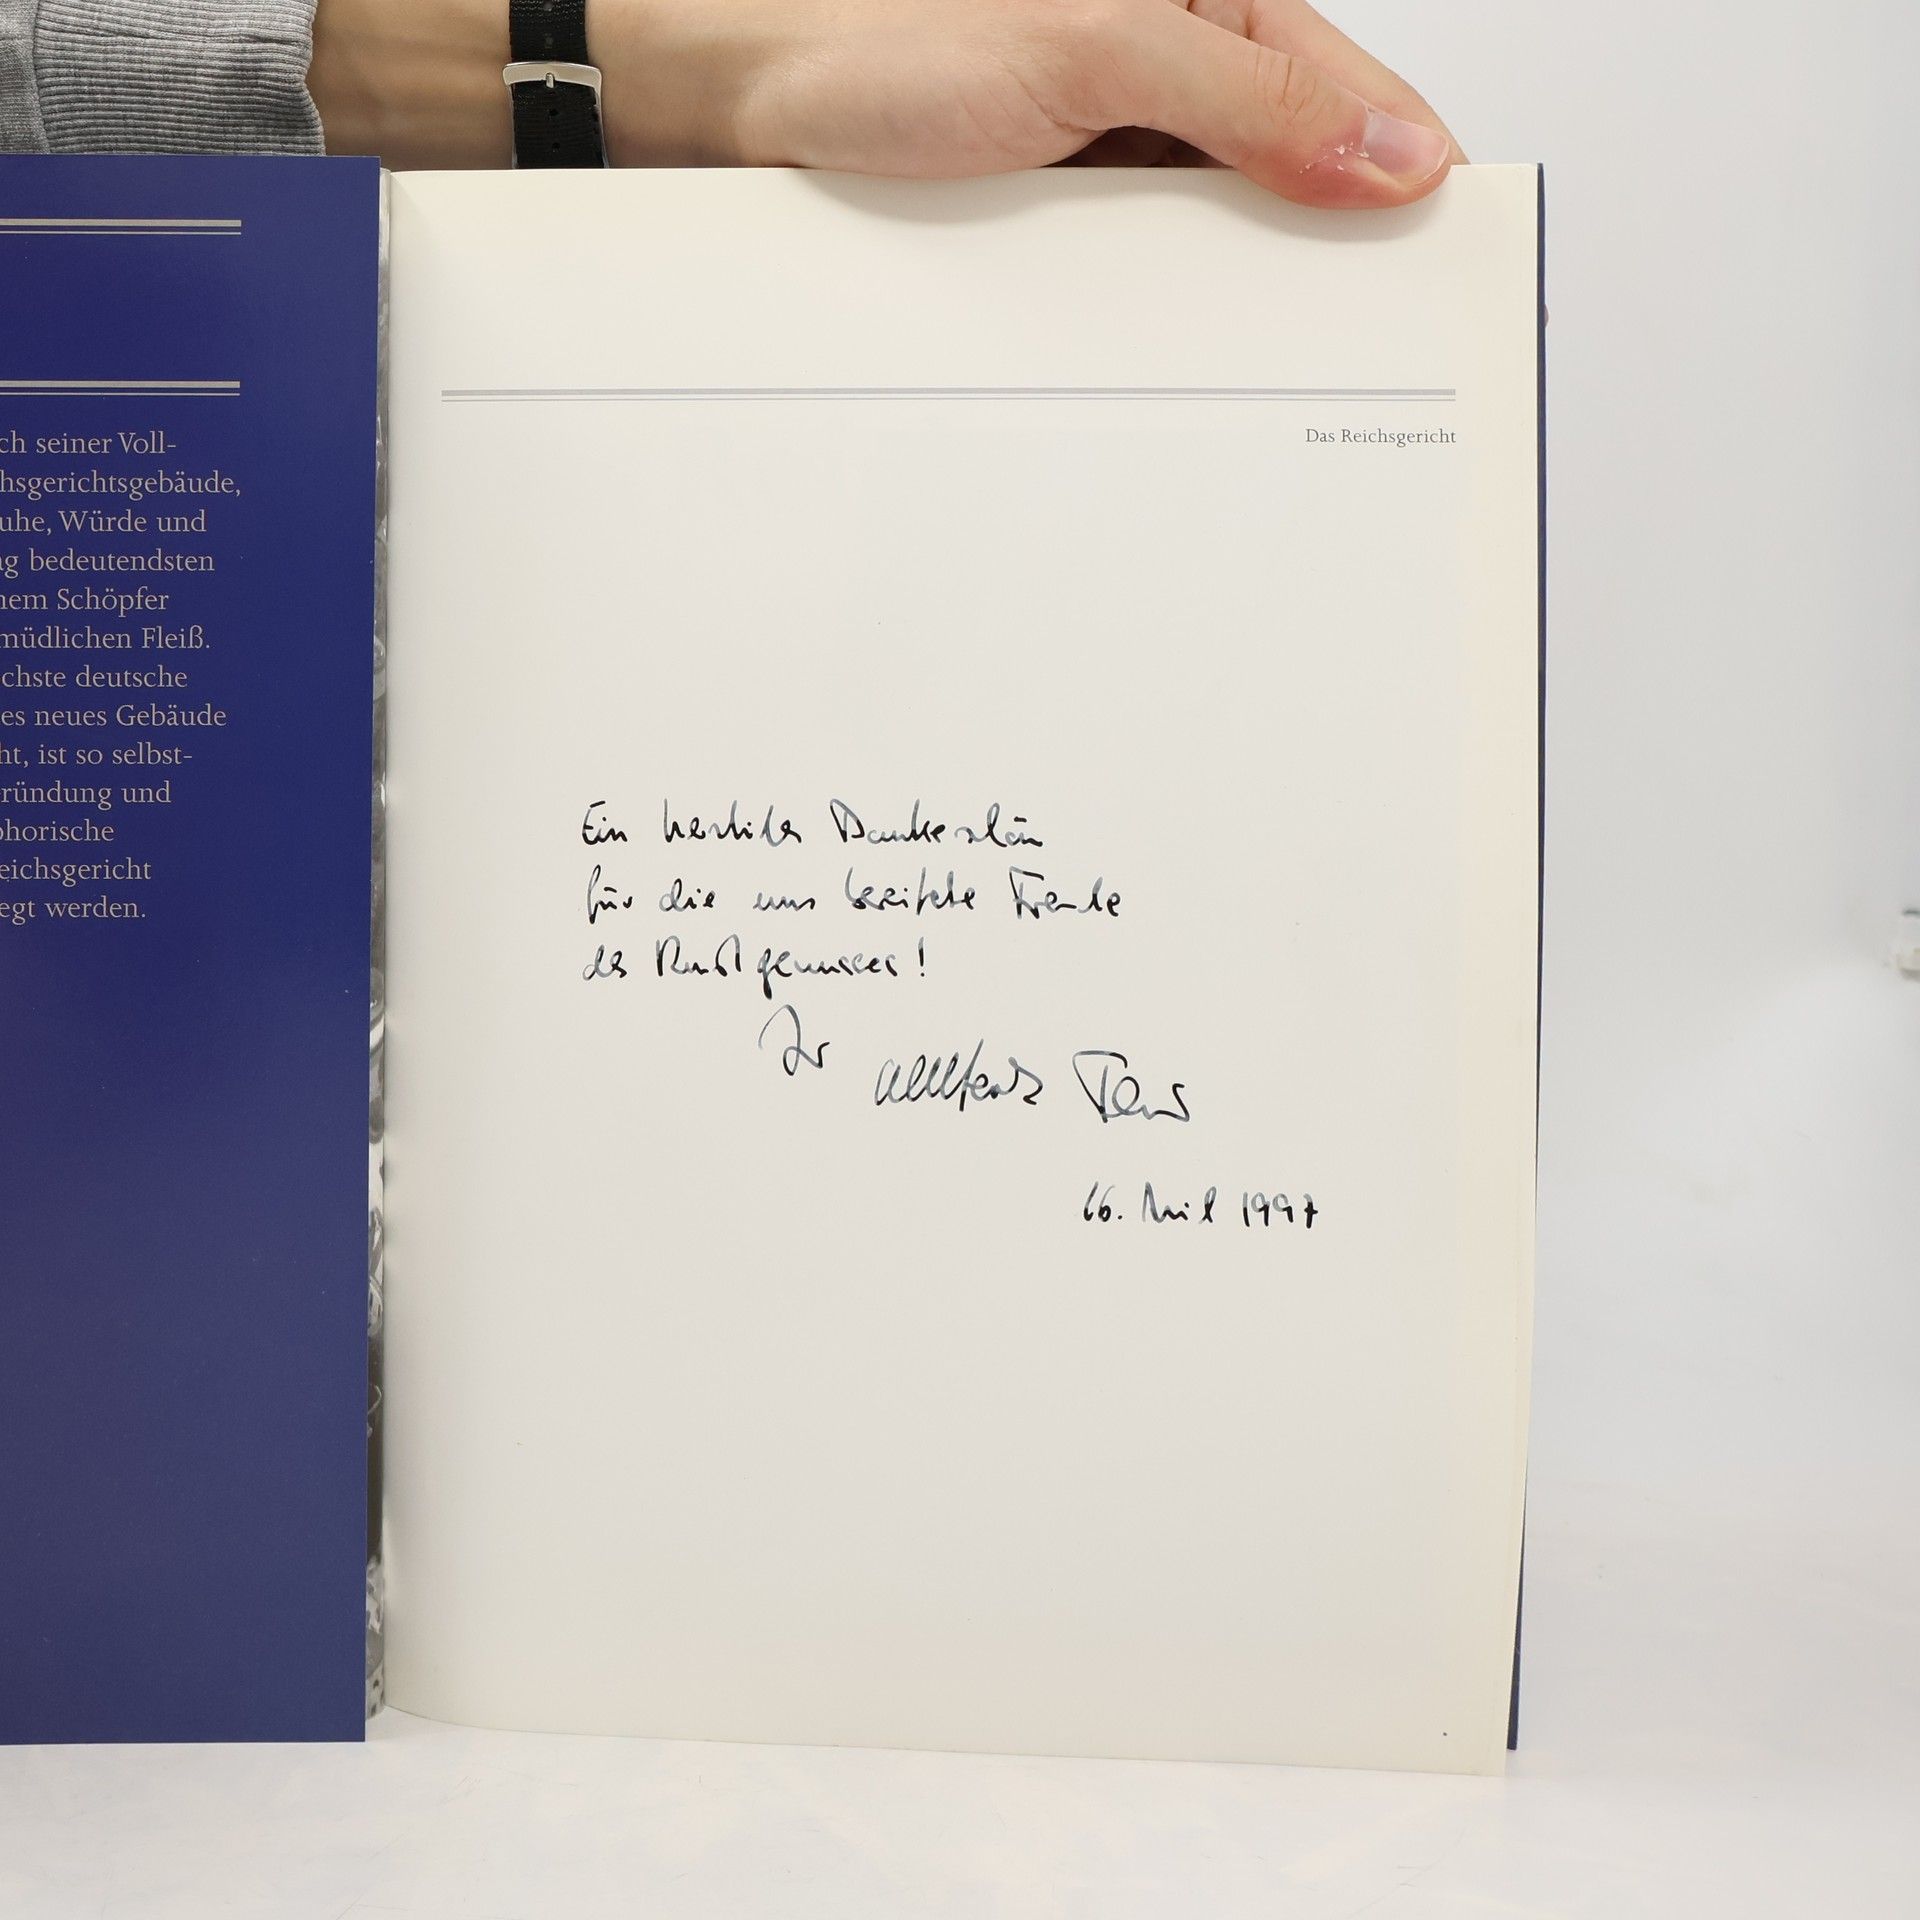 ch seiner Voll-
hsgerichtsgebäude,
uhe, Würde und
ng bedeutendsten
nem Schöpfer
müdlichen Fleiß.
chste deutsche
es neues Gebäude
ht, ist so selbst-
ründung und
phorische
eichsgericht
egt werden.
Das Reichsgericht
Ein herzliches Dankeschön
für die uns bereitete Freude
des Kunstgenusses!
Ihr
16. April 1997